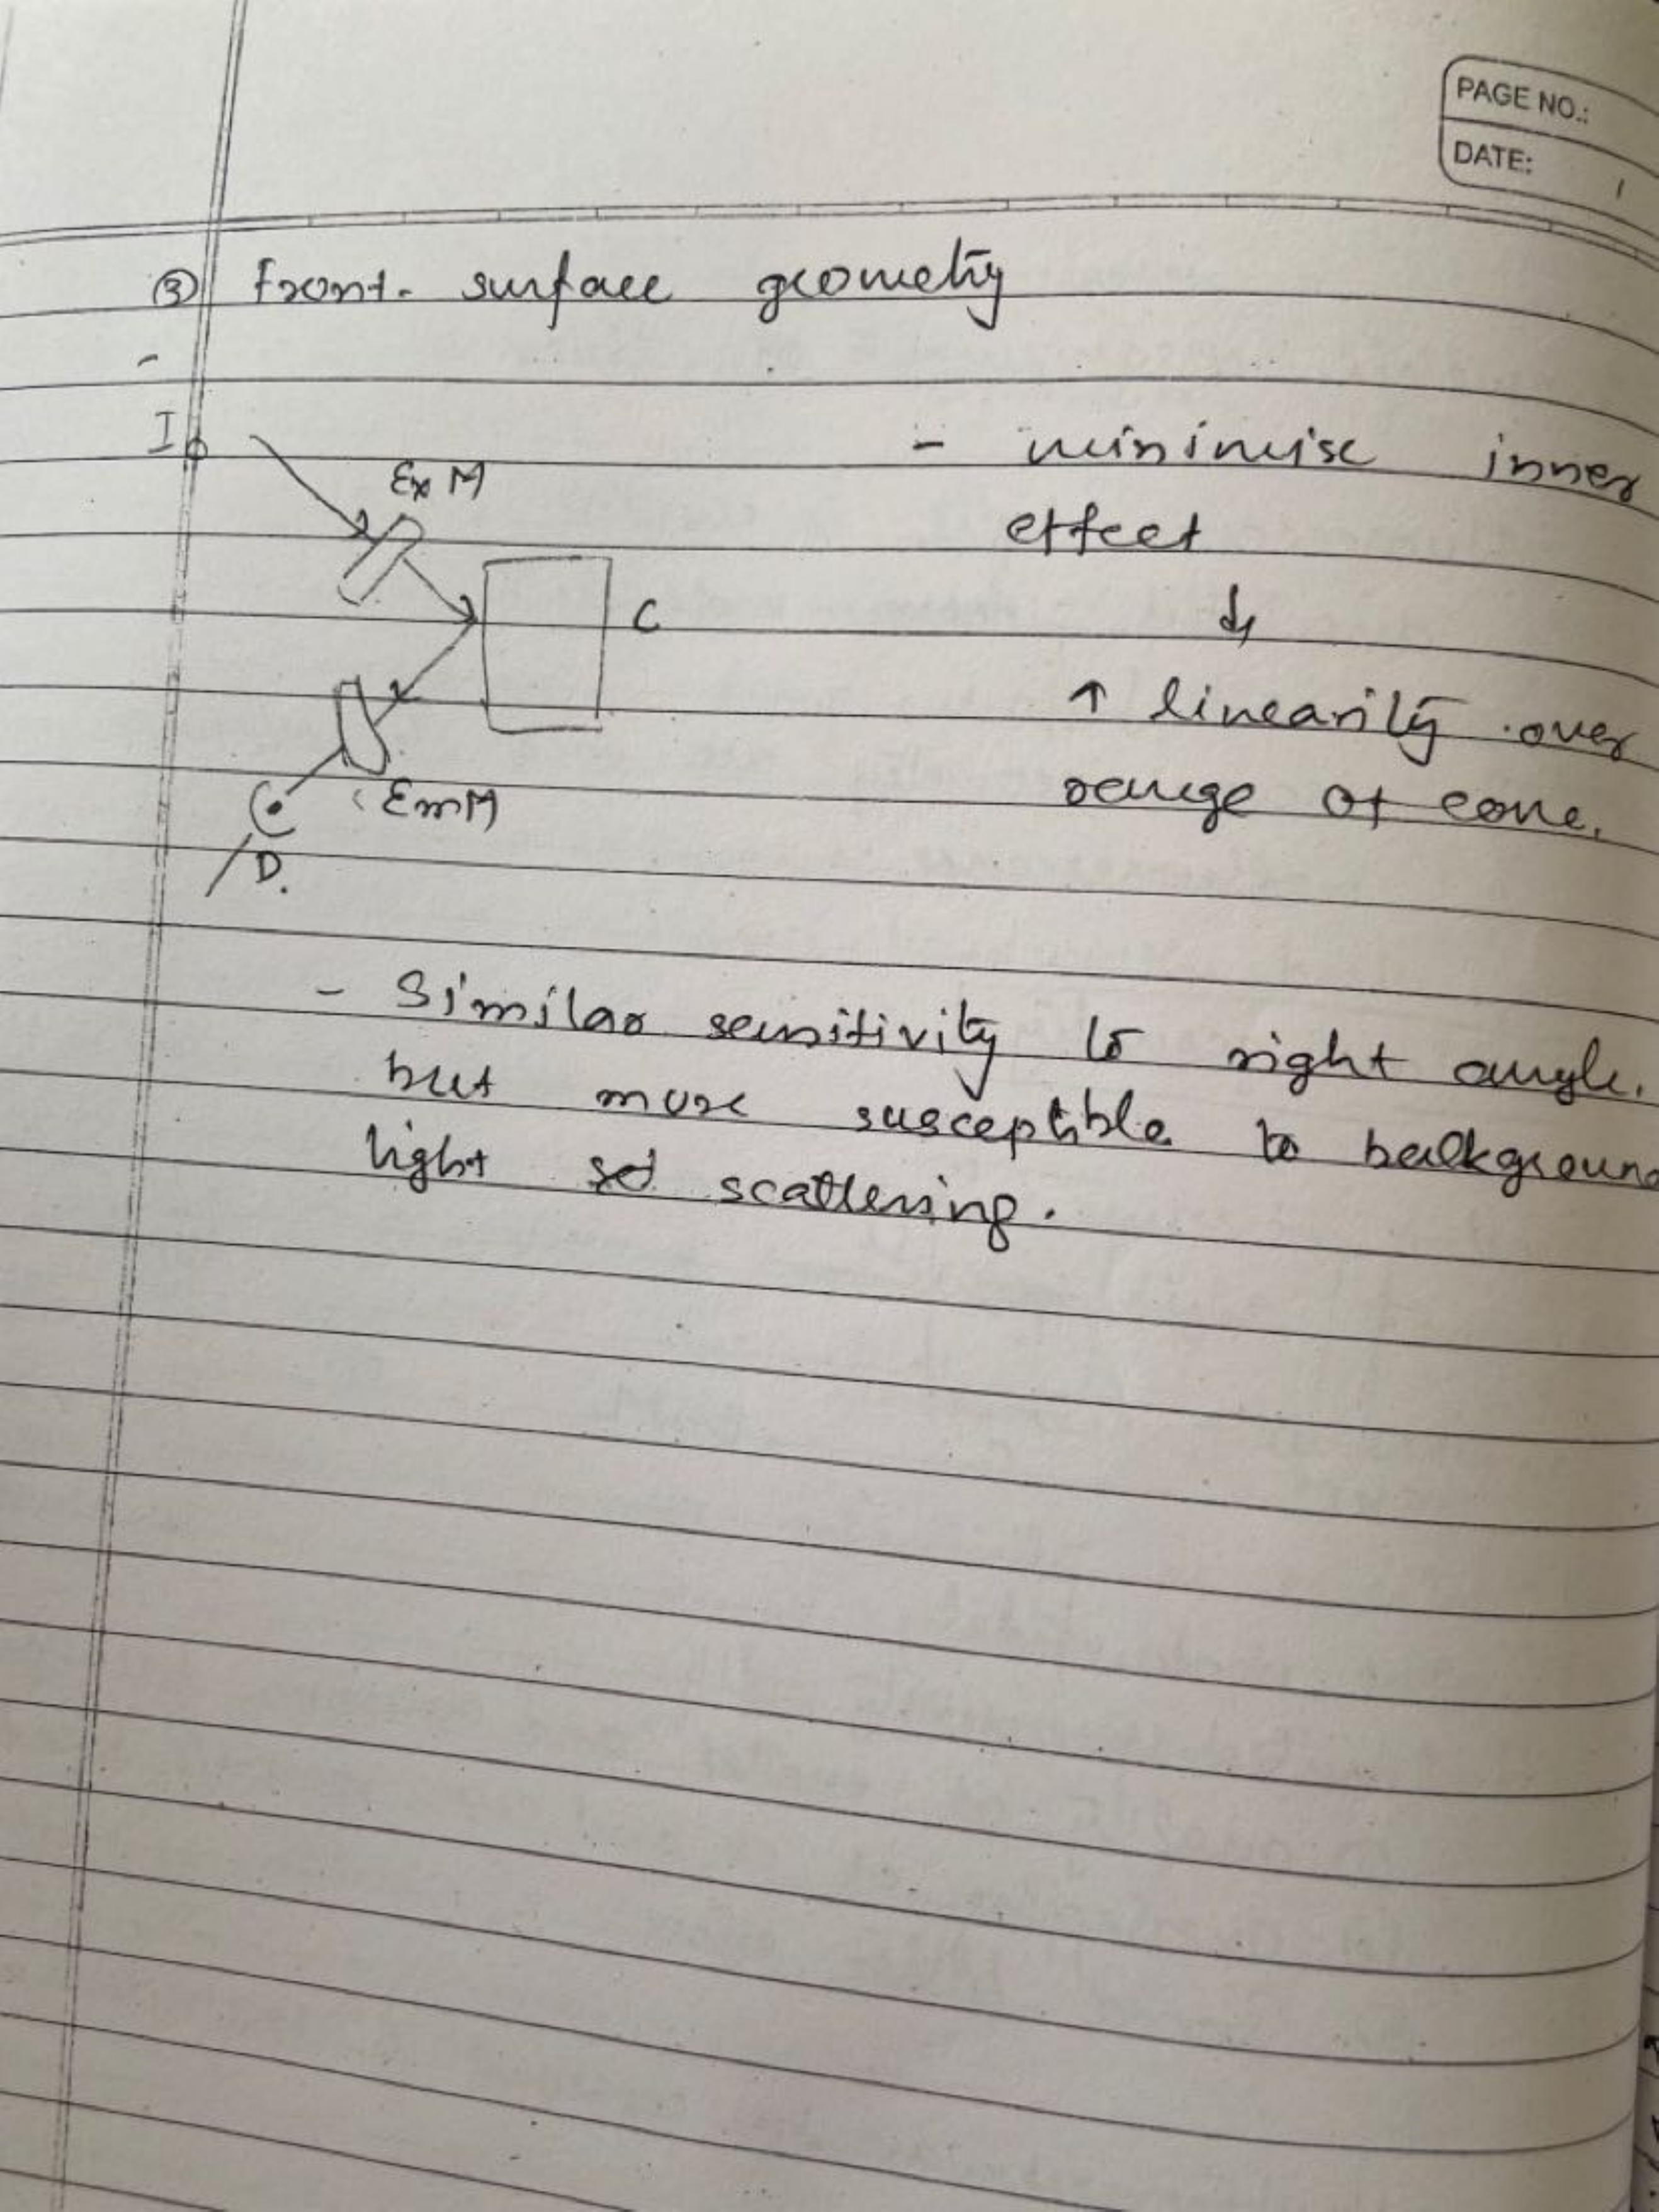 PAGE NO.:
DATE:
③ front- surface geometry
-
I
Ex M
- minimise inner
effect
C
↓
↑ linearity over
range of conc.
Em M
D.
- Similar sensitivity to right angle.
but more susceptible to background
light scattering.